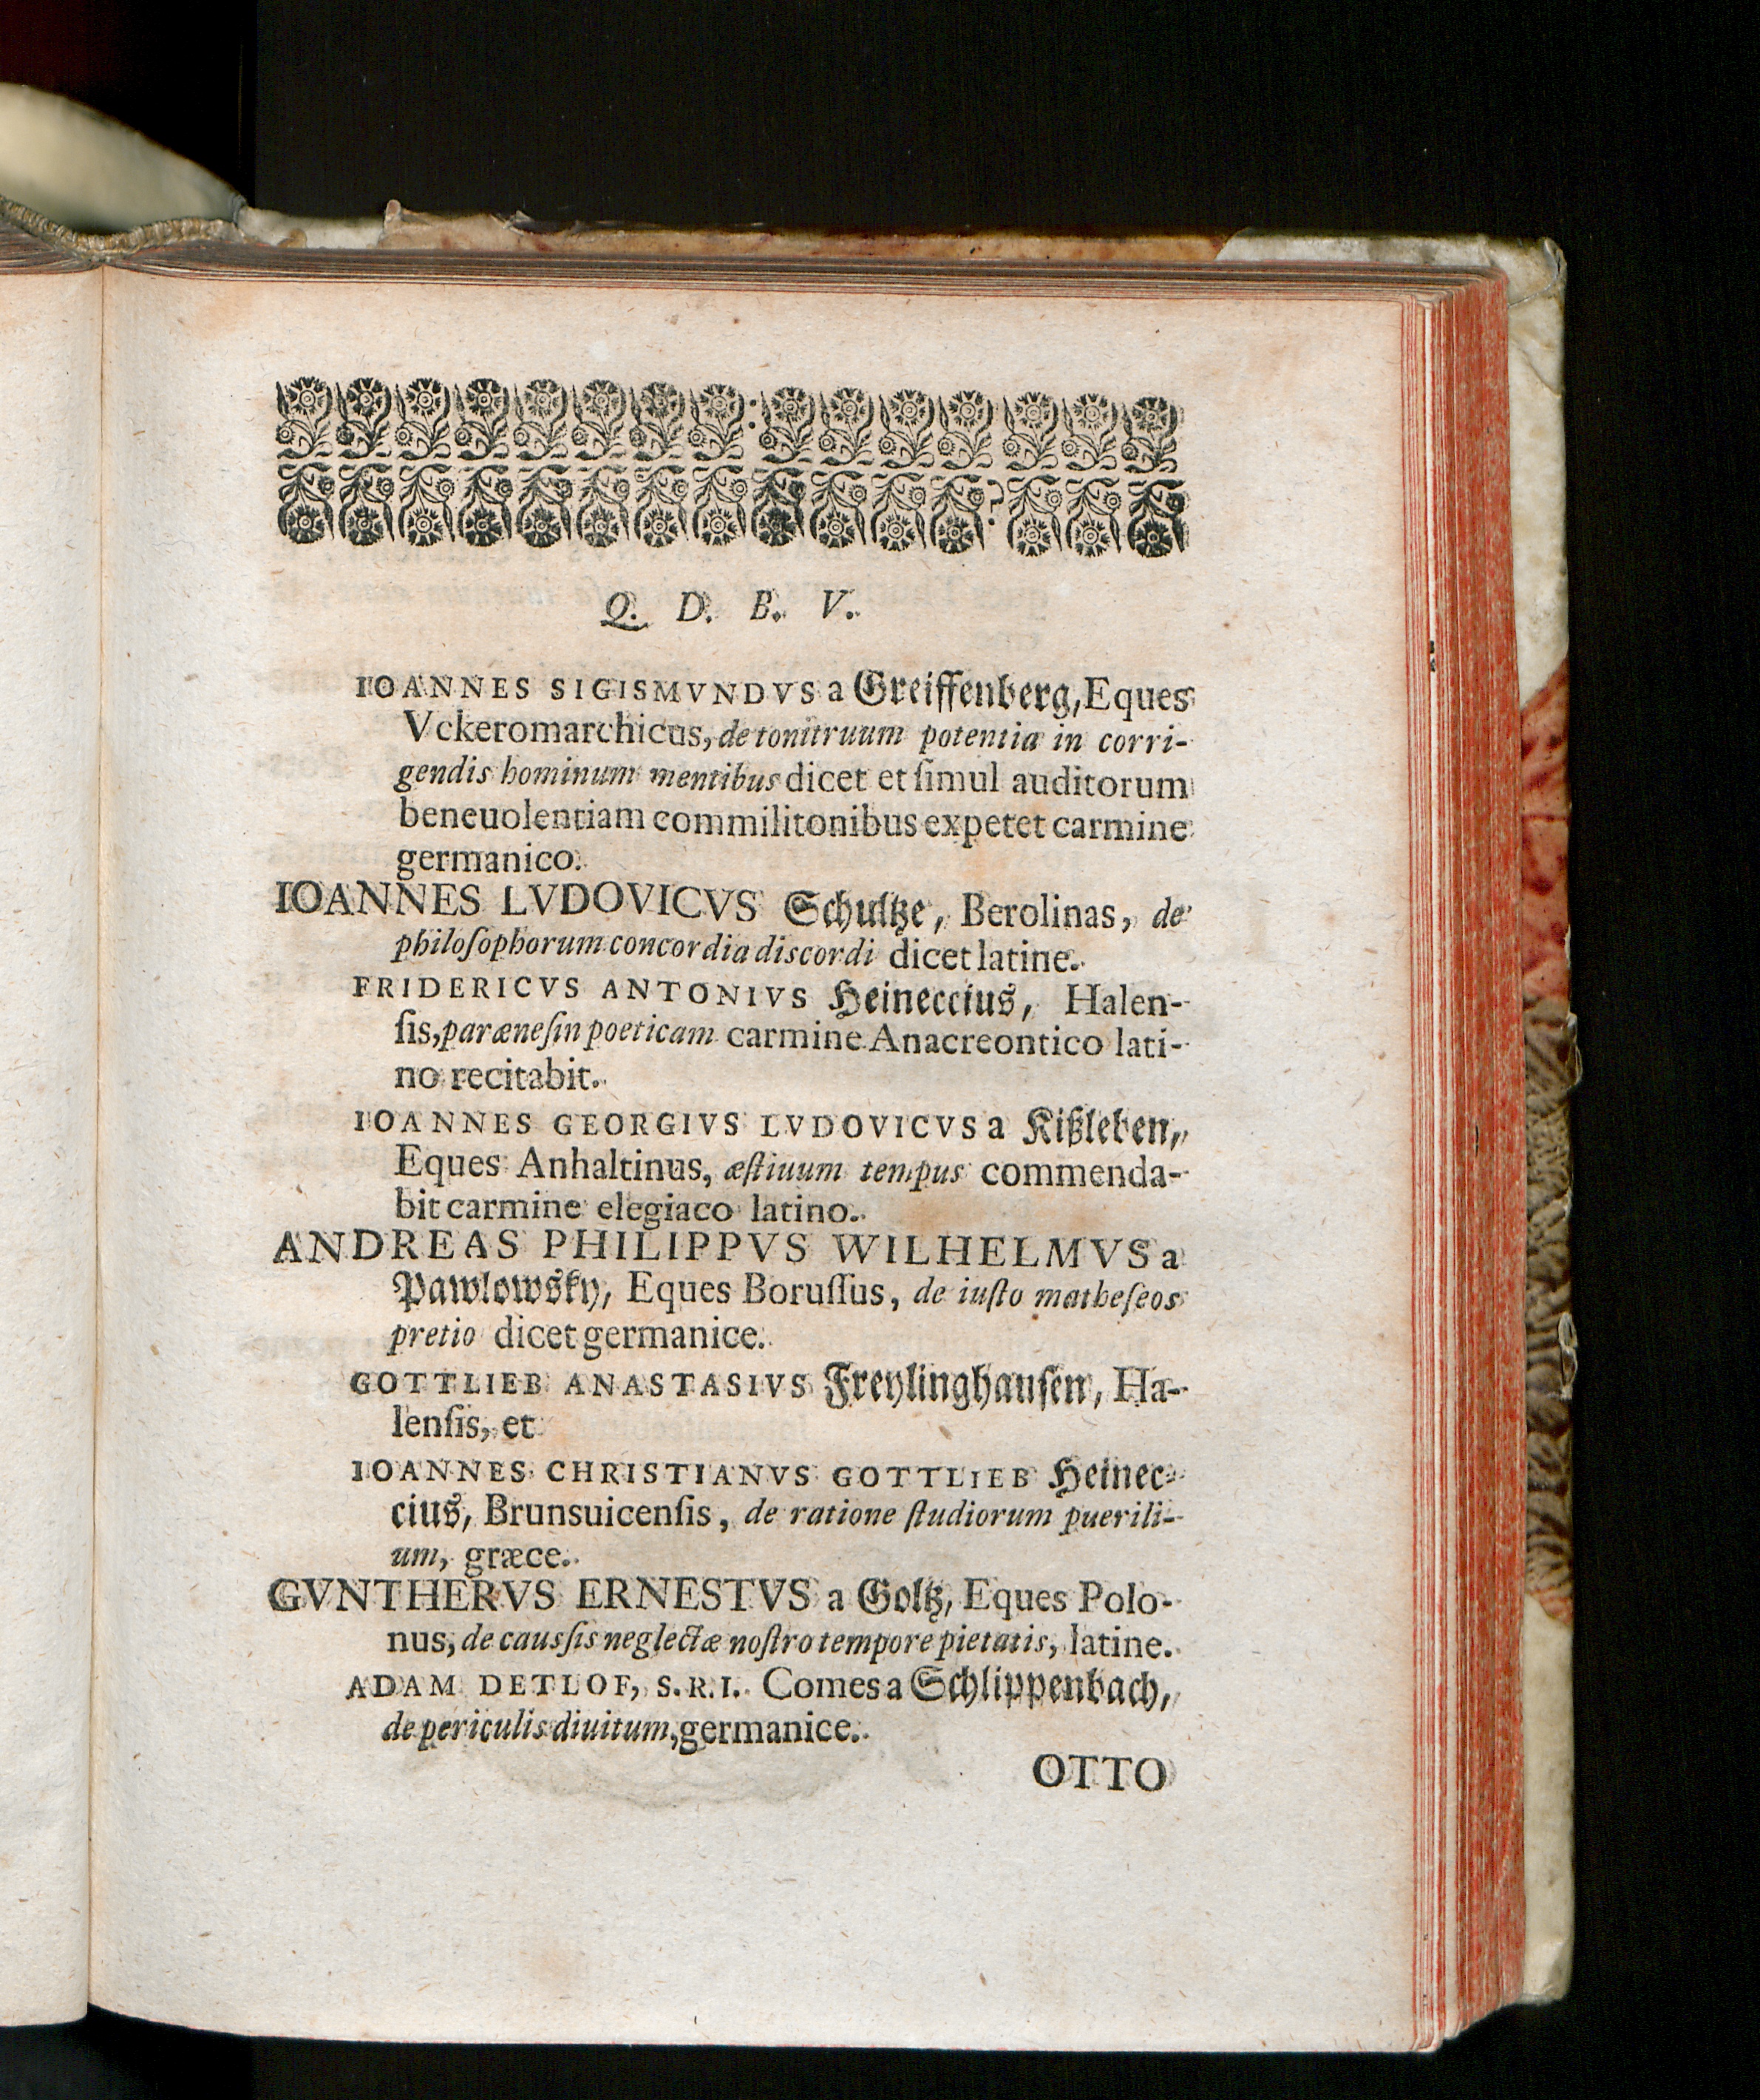 Q. D. B. V.
IOANNES SIGISMVNDVS a Greiffenberg, Eques
Vckeromarchicus, de tonitruum potentia in corri-
gendis hominum mentibus dicet et ſimul auditorum
beneuolentiam commilitonibus expetet carmine
germanico.
IOANNES LVDOVICVS Schultze, Berolinas, de
philoſophorum concordia discordi dicet latine.
FRIDERICVS ANTONIVS Heineccius, Halen-
ſis, paræneſin poeticam carmine Anacreontico lati-
no recitabit.
IOANNES GEORGIVS LVDOVICVS a Kißleben,
Eques Anhaltinus, æſtiuum tempus commenda-
bit carmine elegiaco latino.
ANDREAS PHILIPPVS WILHELMVS a
Pawlowsky, Eques Boruſſus, de iuſto matheſeos
pretio dicet germanice.
GOTTLIEB ANASTASIVS Freylinghauſen, Ha-
lenſis, et
IOANNES CHRISTIANVS GOTTLIEB Heinec-
cius, Brunsuicenſis, de ratione ſtudiorum puerili-
um, græce.
GVNTHERVS ERNESTVS a Goltz, Eques Polo-
nus, de causſis neglectæ noſtro tempore pietatis, latine.
ADAM DETLOF, S.R.I. Comes a Schlippenbach,
de periculis diuitum, germanice.
OTTO